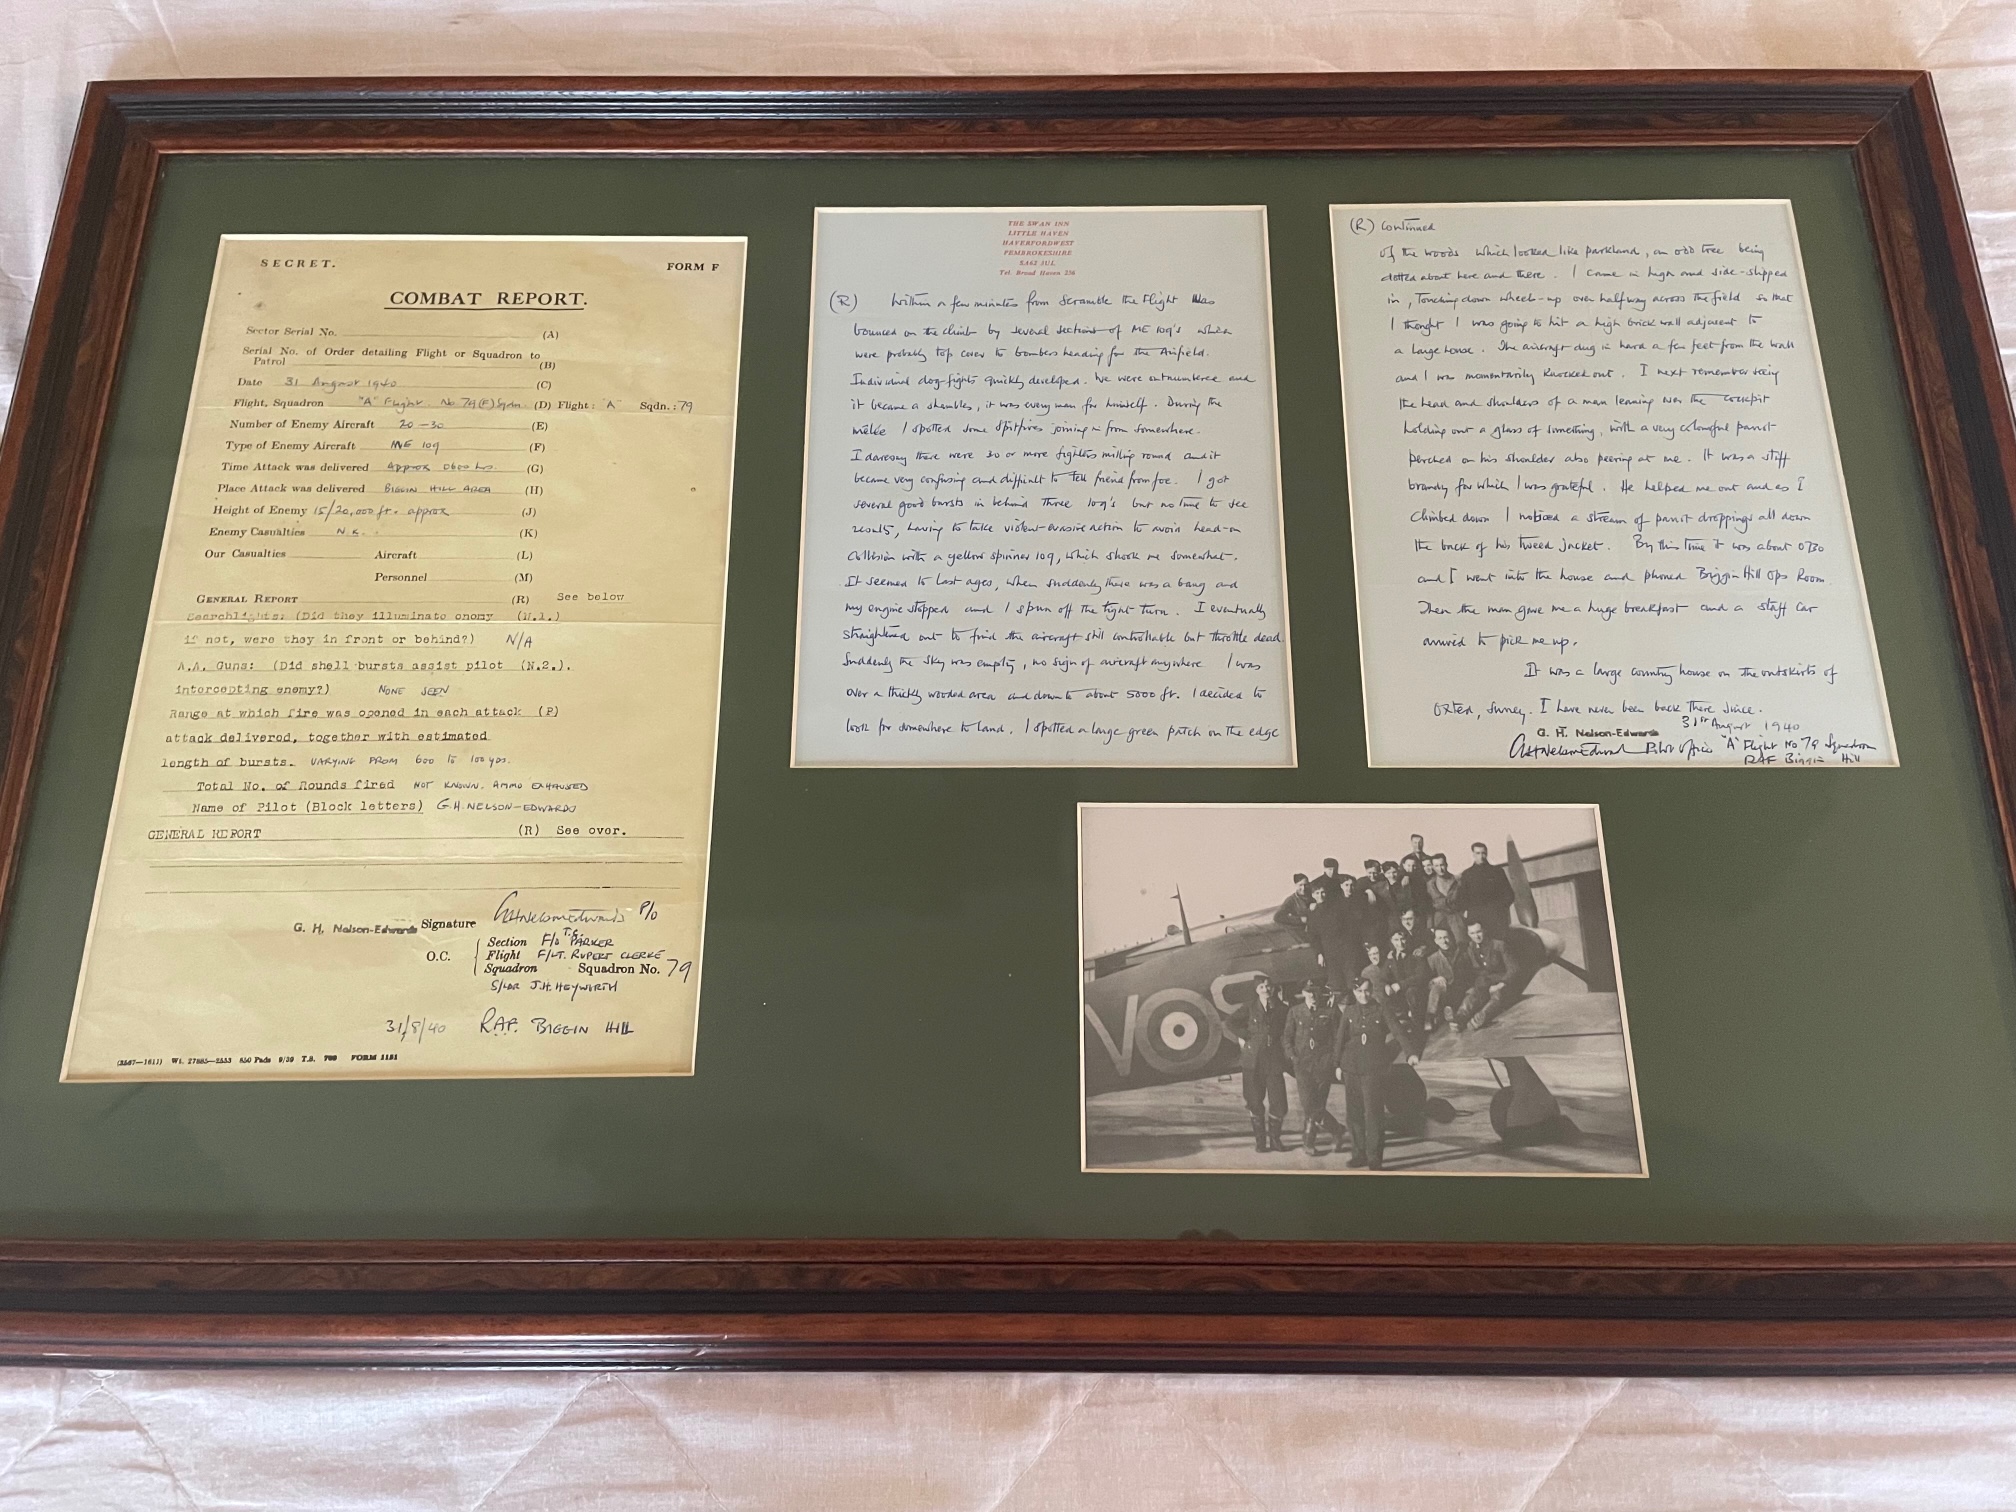 SECRET.
FORM F
COMBAT REPORT.
Sector Serial No. (A)
Serial No. of Order detailing Flight or Squadron to
Patrol (B)
Date 31 August 1940 (C)
Flight, Squadron "A" Flight No 79(F) Sqdn. (D) Flight: "A" Sqdn.: 79
Number of Enemy Aircraft 20-30 (E)
Type of Enemy Aircraft ME 109 (F)
Time Attack was delivered Approx 0600 hrs. (G)
Place Attack was delivered BIGGIN HILL AREA (H)
Height of Enemy 15/20,000 ft. approx (J)
Enemy Casualties (K)
Our Casualties Aircraft (L)
Personnel (M)
GENERAL REPORT (R) See below
Searchlights: (Did they illuminate enemy (N.1.)
if not, were they in front or behind?) N/A
A.A. Guns: (Did shell bursts assist pilot (N.2.).
intercepting enemy?) NONE SEEN
Range at which fire was opened in each attack (P)
attack delivered, together with estimated
length of bursts. VARYING FROM 600 to 100 yds.
Total No. of Rounds fired NOT KNOWN. AMMO EXHAUSTED
Name of Pilot (Block letters) G.H. NELSON-EDWARDS
GENERAL REPORT (R) See over.
G. H. Nelson-Edwards Signature GHNelsonEdwards P/O
Section F/O T.G. PARKER
O.C. Flight F/LT. RUPERT CLERKE
Squadron Squadron No. 79
S/LDR J.H. HEYWORTH
31/8/40 R.A.F. BIGGIN HILL
Wt. 27885-2553 850 Pads 9/39 T.S. 700 FORM 1151
THE SWAN INN
LITTLE HAVEN
HAVERFORDWEST
PEMBROKESHIRE
SA62 3UL
Tel. Broad Haven 256
(R) Within a few minutes from Scramble the Flight was
bounced on the climb by several sections of ME 109's which
were probably top cover to bombers heading for the Airfield.
Individual dog-fights quickly developed. We were outnumbered and
it became a shambles, it was every man for himself. During the
melée I spotted some Spitfires joining in from somewhere.
I daresay there were 30 or more fighters milling round and it
became very confusing and difficult to tell friend from foe. I got
several good bursts in behind three 109's but no time to see
results, having to take violent evasive action to avoid head-on
collision with a yellow spinner 109, which shook me somewhat.
It seemed to last ages, when suddenly there was a bang and
my engine stopped and I spun off the tight turn. I eventually
straightened out to find the aircraft still controllable but throttle dead.
Suddenly the sky was empty, no sign of aircraft anywhere I was
over a thickly wooded area and down to about 5000 ft. I decided to
look for somewhere to land. I spotted a large green patch on the edge
(R) Continued
of the woods which looked like parkland, an odd tree being
dotted about here and there. I came in high and side-slipped
in, touching down wheels-up over halfway across the field so that
I thought I was going to hit a high brick wall adjacent to
a large house. The aircraft dug in hard a few feet from the wall
and I was momentarily knocked out. I next remember seeing
the head and shoulders of a man leaning over the cockpit
holding out a glass of something, with a very colourful parrot
perched on his shoulder also peering at me. It was a stiff
brandy for which I was grateful. He helped me out and as I
climbed down I noticed a stream of parrot droppings all down
the back of his tweed jacket. By this time it was about 0730
and I went into the house and phoned Biggin Hill Ops Room.
Then the man gave me a huge breakfast and a staff car
arrived to pick me up.
It was a large country house on the outskirts of
Oxted, Surrey. I have never been back there since.
31st August 1940
G. H. Nelson-Edwards
GHNelsonEdwards Pilot Officer "A" Flight No 79 Squadron
RAF Biggin Hill
VO S